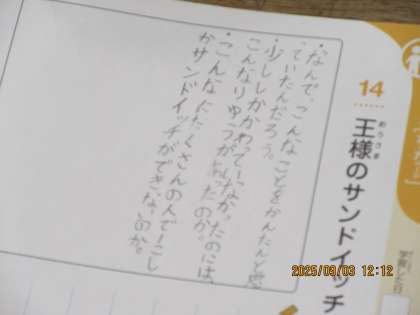 14
おうさま
王様のサンドイッチ
学習した日
・なんで、こんなことをかんたんと思
っていたんだろう。
・少ししかかわっていなかったのには、
こんなりゆうがあったのか。
・こんなにたくさんの人で一こし
かサンドイッチができないのか。
2025/09/03 12:12